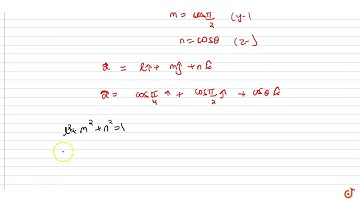 m = cos π/2 (y-)
n = cosθ (z-)
a⃗ = l î + m ĵ + n k̂
a⃗ = cos π/4 î + cos π/2 ĵ + cosθ k̂
l² + m² + n² = 1